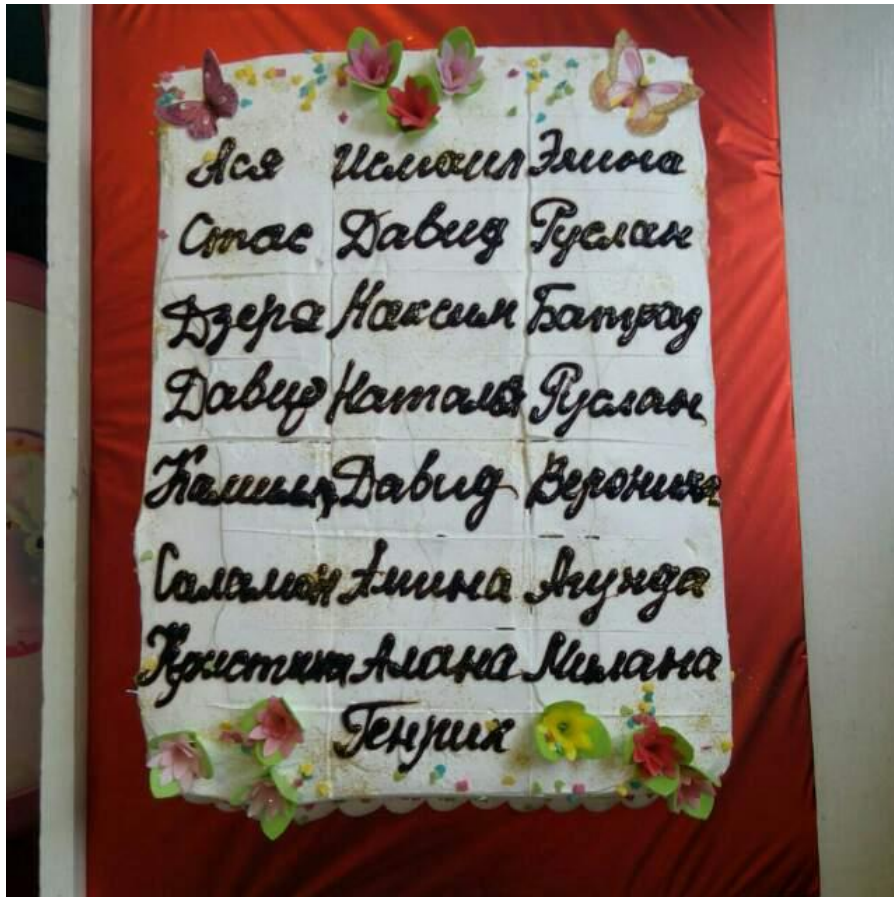 Ася Исмаил Элина
Стас Давид Руслан
Дзера Максим Батрад
Давид Наталья Руслан
Камилла Давид Вероника
Саламон Амина Агунда
Кристина Алана Милана
Генрих